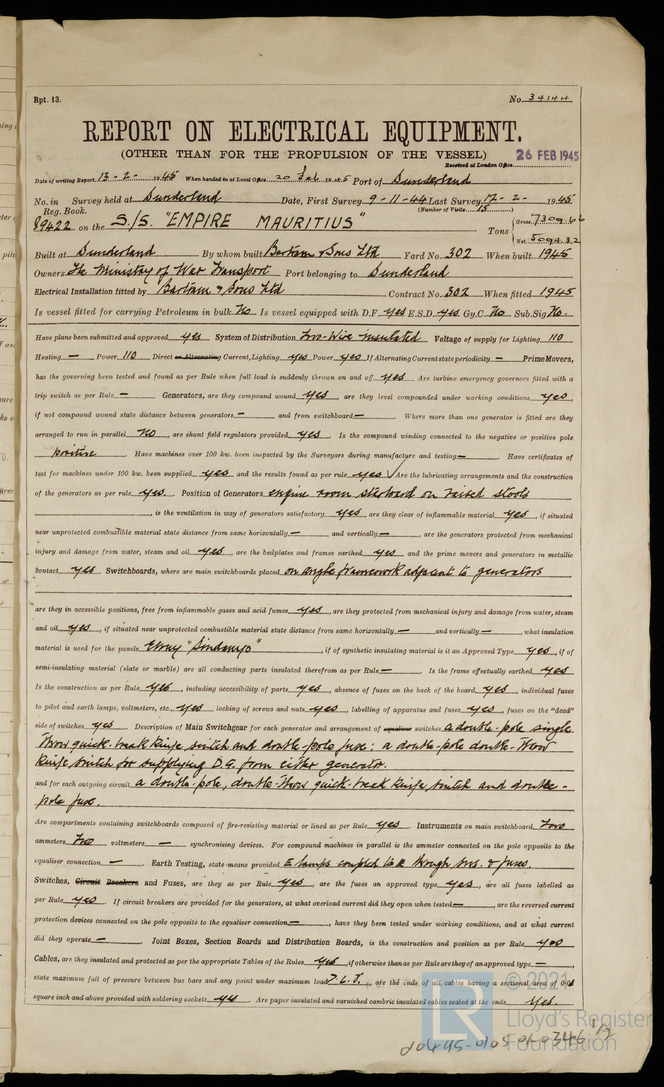 Rpt. 13. No. 34144
REPORT ON ELECTRICAL EQUIPMENT.
(OTHER THAN FOR THE PROPULSION OF THE VESSEL)
Received at London Office 26 FEB 1945
Date of writing Report 13-2- 1945 When handed in at Local Office 20 Feb 1945 Port of Sunderland
No. in Survey held at Sunderland Date, First Survey 9-11-44 Last Survey 17-2- 1945
Reg. Book. (Number of Visits 15)
89422 on the S/S. "EMPIRE MAURITIUS" Tons Gross 7309.66 Net
Built at Sunderland By whom built Bartram & Sons Ltd Yard No. 302 When built 1945
Owners The Ministry of War Transport Port belonging to Sunderland
Electrical Installation fitted by Bartram & Sons Ltd Contract No. 302 When fitted 1945
Is vessel fitted for carrying Petroleum in bulk No Is vessel equipped with D.F. yes E.S.D. yes Gy.C. No Sub.Sig No.
Have plans been submitted and approved yes System of Distribution Two-Wire insulated Voltage of supply for Lighting 110
Heating — Power 110 Direct or Alternating Current, Lighting yes Power yes If Alternating Current state periodicity — Prime Movers,
has the governing been tested and found as per Rule when full load is suddenly thrown on and off yes Are turbine emergency governors fitted with a
trip switch as per Rule — Generators, are they compound wound yes, are they level compounded under working conditions yes,
if not compound wound state distance between generators — and from switchboard — Where more than one generator is fitted are they
arranged to run in parallel No, are shunt field regulators provided yes Is the compound winding connected to the negative or positive pole
positive Have machines over 100 kw. been inspected by the Surveyors during manufacture and testing — Have certificates of
test for machines under 100 kw. been supplied yes and the results found as per rule yes Are the lubricating arrangements and the construction
of the generators as per rule yes. Position of Generators engine room starboard on raised stools
, is the ventilation in way of generators satisfactory yes are they clear of inflammable material yes, if situated
near unprotected combustible material state distance from same horizontally — and vertically —, are the generators protected from mechanical
injury and damage from water, steam and oil yes, are the bedplates and frames earthed yes and the prime movers and generators in metallic
contact yes Switchboards, where are main switchboards placed on angle framework adjacent to generators
are they in accessible positions, free from inflammable gases and acid fumes yes, are they protected from mechanical injury and damage from water, steam
and oil yes, if situated near unprotected combustible material state distance from same horizontally — and vertically —, what insulation
material is used for the panels Ebony "Sindanyo", if of synthetic insulating material is it an Approved Type yes, if of
semi-insulating material (slate or marble) are all conducting parts insulated therefrom as per Rule — Is the frame effectually earthed yes
Is the construction as per Rule yes, including accessibility of parts yes, absence of fuses on the back of the board yes, individual fuses
to pilot and earth lamps, voltmeters, etc. yes locking of screws and nuts yes, labelling of apparatus and fuses yes, fuses on the "dead"
side of switches yes Description of Main Switchgear for each generator and arrangement of equaliser switches a double-pole single
throw quick-break knife switch and double-pole fuse: a double-pole double-throw
knife switch for supplying D.G. from either generator.
and for each outgoing circuit a double-pole, double-throw quick-break knife switch and double-
pole fuse.
Are compartments containing switchboards composed of fire-resisting material or lined as per Rule yes Instruments on main switchboard Two
ammeters Two voltmeters — synchronising devices. For compound machines in parallel is the ammeter connected on the pole opposite to the
equaliser connection — Earth Testing, state means provided E lamps coupled to E through sws. & fuses
Switches, Circuit Breakers and Fuses, are they as per Rule yes, are the fuses an approved type yes, are all fuses labelled as
per Rule yes If circuit breakers are provided for the generators, at what overload current did they open when tested —, are the reversed current
protection devices connected on the pole opposite to the equaliser connection —, have they been tested under working conditions, and at what current
did they operate — Joint Boxes, Section Boards and Distribution Boards, is the construction and position as per Rule yes
Cables, are they insulated and protected as per the appropriate Tables of the Rules yes, if otherwise than as per Rule are they of an approved type —
state maximum fall of pressure between bus bars and any point under maximum load, are the ends of all cables having a sectional area of 0·04
square inch and above provided with soldering sockets yes Are paper insulated and varnished cambric insulated cables sealed at the ends yes.
© 2021
Lloyd's Register
Foundation
1/2